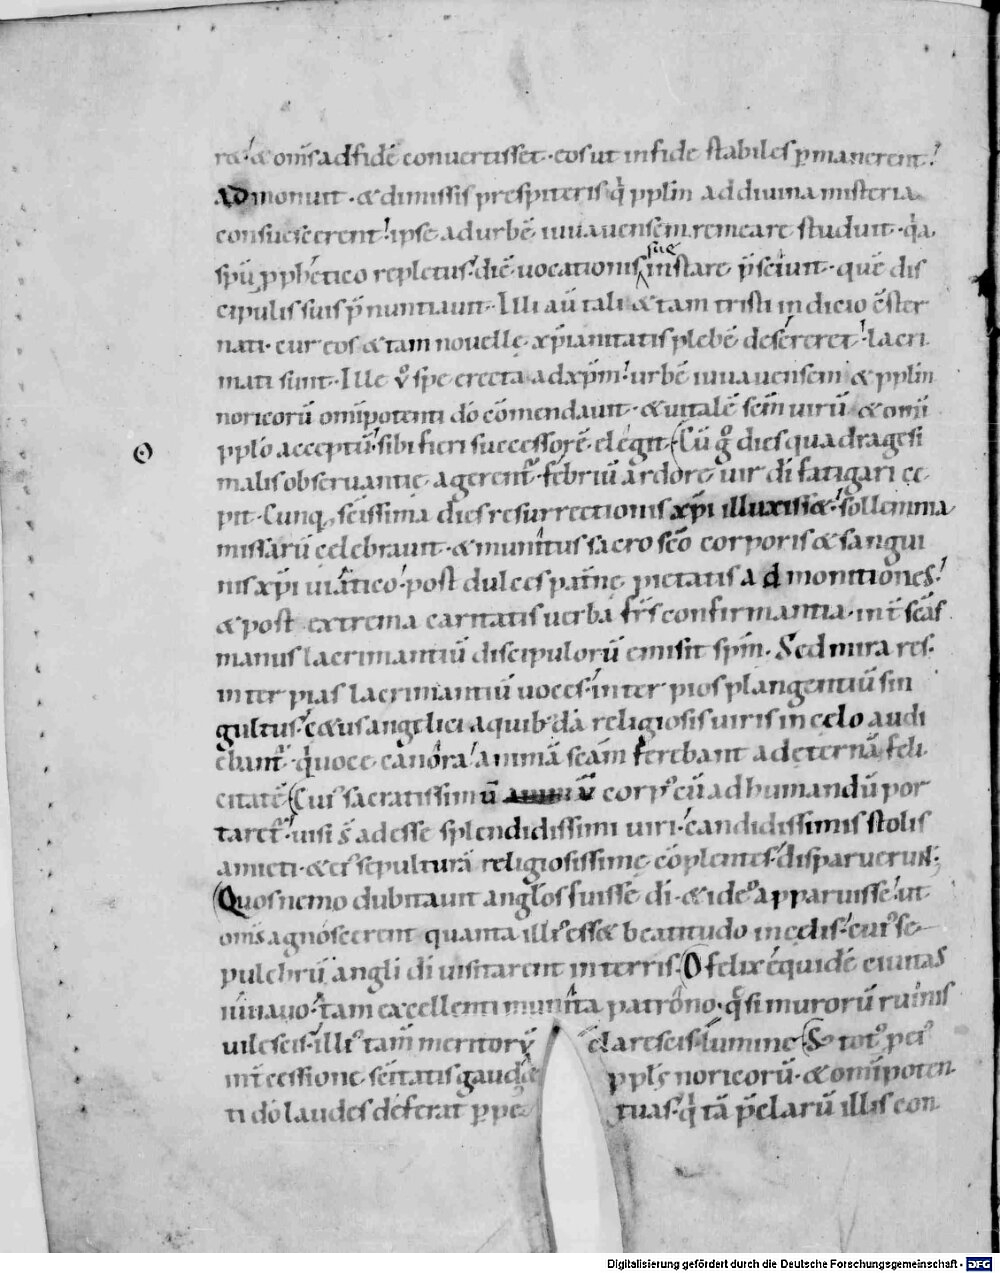 r&. & oms̄ ad fidē conuertisset. eos ut in fide stabiles p̱manerent.
Admonuit. & dimissis prespiteris q̇ pplm̄ ad diuina misteria
consuescerent. ipse ad urbē iuuauensem remeare studuit. q̇a
spū p̱ph&ico repletus. diē uocationis sue instare p̄sciuit. quē dis
cipulis suis p̄nuntiauit. Illi aū tali & tam tristi indicio ēster
nati. cur eos & tam nouellę xp̄ianitatis plebē desereret. lacri
mati sunt. Ille v̊ spe erecta ad xp̄m. urbē iuuauensem & pplm̄
noricorū omīpotenti dō cōmendauit. & uitalē scm̄ uirū & omī
pplo acceptū. sibi fieri successorē elegit. Cū g̊ dies quadragesi
malis obseruantię agerent᷒. febriū ardore uir dī fatigari cę
pit. Cunq, sc̄issima dies resurrectionis xp̄i illuxiss&. sollemnia
missarū celebrauit. & munitus sacro sc̄o corporis & sangui
nis xp̄i uiatico. post dulces pat̄nę pietatis admonitiones.
& post extrema caritatis uerba fr̄s confirmantia. int̄ sc̄as
manus lacrimantiū discipulorū emisit spm̄. Sed mira res.
inter pias lacrimantiū uoces. inter pios plangentiū sin
gultus. cętus angelici a quibdā religiosis uiris in cęlo audi
ebant᷒. q̇ uoce canora. animā sc̄am ferebant ad eternā feli
citatē. Cui᷒ sacratissimū corp᷒ cū ad humandū por
taret᷒. uisi s̄ adesse splendidissimi uiri. candidissimis stolis
amicti. & ei᷒ sepulturā religiosissimę cōplentes. disparuerunt;
Quos nemo dubitauit angłos fuisse dī. & ideo apparuisse. ut
oms̄ agnoscerent quanta illi᷒ ess& beatitudo in cęlis. cui᷒ se
pulchrū angli dī uisitarent in terris. O felix equidē ciuitas
iuuauo. tam excellenti munita patrono. q̊ si murorū ruinis
uilescis. illi᷒ tam̄ meritorū clarescis lumine. & tot᷒ pci᷒
int̄cessione sc̄itatis gaud& ppłs noricorū. & omīpoten
ti dō laudes deferat p̱pe tuas. q̇ tā p̄clarū illis con
O
Digitalisierung gefördert durch die Deutsche Forschungsgemeinschaft - DFG